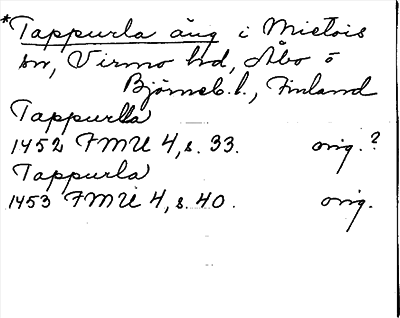 *Tappurla äng i Mietois
sn, Virmo hd, Åbo o
Björneb. l., Finland
Tappurla
1452 FMU 4, s. 33. orig.?
Tappurla
1453 FMU 4, s. 40. orig.